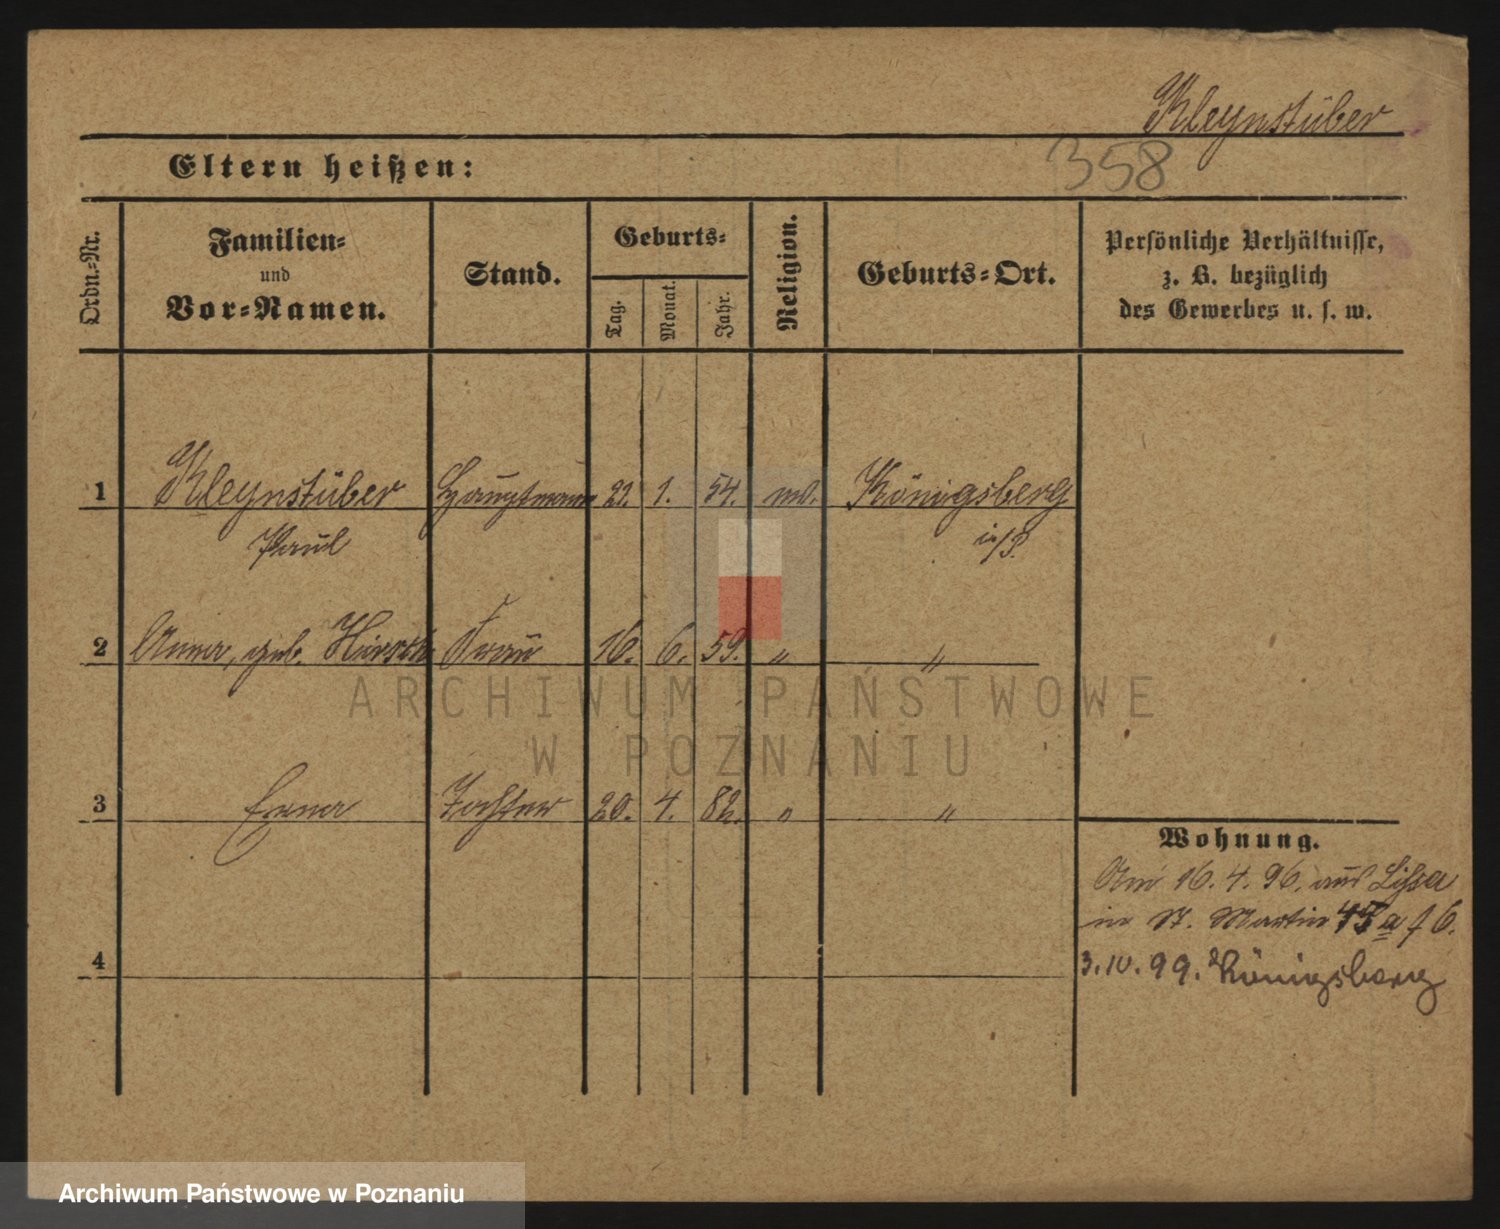 Kleynstüber
358
Eltern heißen:
Ordn.-Nr.
Familien-
und
Vor-Namen.
Stand.
Geburts-
Tag.
Monat.
Jahr.
Religion.
Geburts-Ort.
Persönliche Verhältnisse,
z. B. bezüglich
des Gewerbes u. s. w.
1 Kleynstüber Hauptmann 22. 1. 54. Königsberg
Paul i/P.
2 Anna, geb. Hirsch Frau 16. 6. 59. " "
ARCHIWUM PAŃSTWOWE
W POZNANIU
3 Erna Tochter 20. 4. 82. " "
Wohnung.
Am 16. 4. 96. aus Lissa
in St. Martin a 6.
3.10.99. Königsberg
4
Archiwum Państwowe w Poznaniu